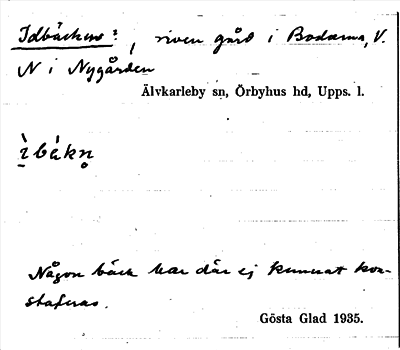 Idbäcken?, riven gård i Bodarna, V.
N i Nygården
Älvkarleby sn, Örbyhus hd, Upps. l.
ì bákn̥
Någon bäck har där ej kunnat kon-
stateras.
Gösta Glad 1935.